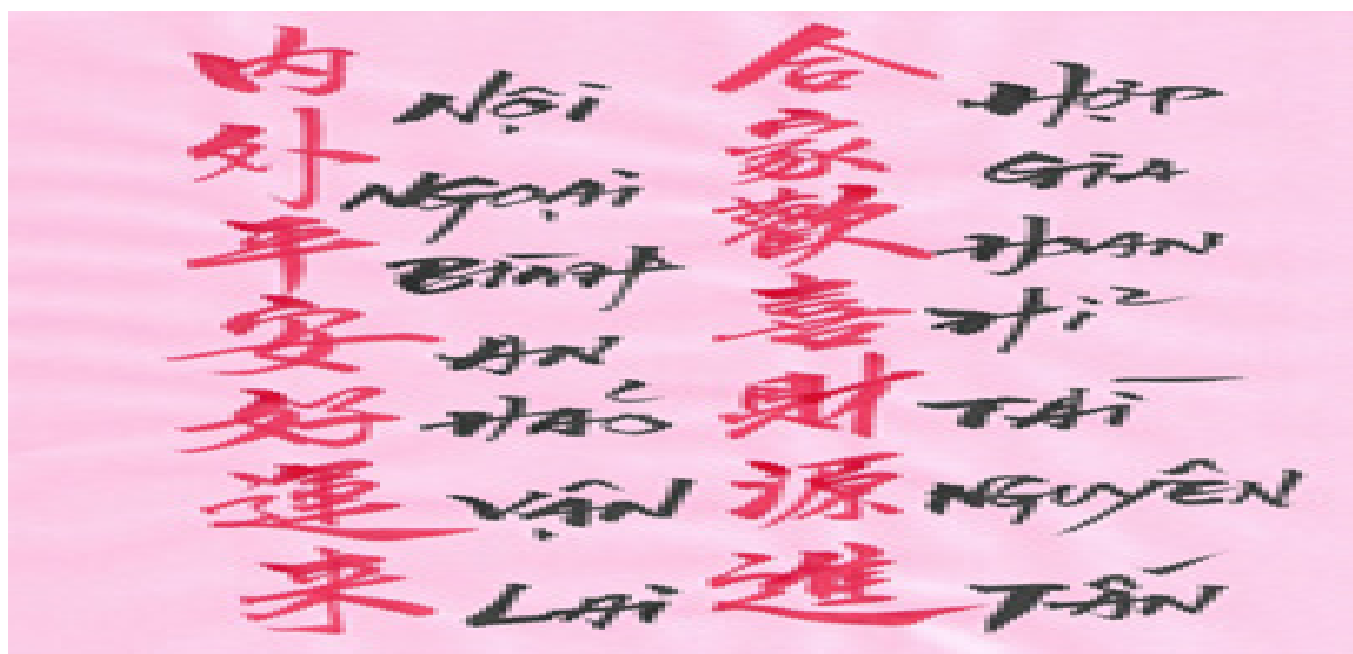 内 Nội
外 Ngoại
平 Bình
安 An
好 Hảo
運 Vận
来 Lai
合 Hợp
家 Gia
歡 Hoan
喜 Hỉ
財 Tài
源 Nguyên
進 Tấn